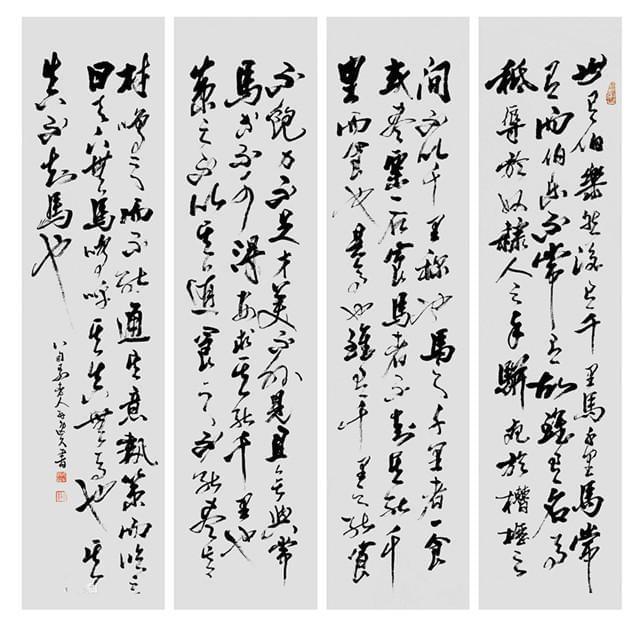 世有伯樂然後有千里馬千里馬常
有而伯乐不常有故雖有名馬
祇辱於奴隸人之手駢死於槽櫪之
間不以千里稱也馬之千里者一食
或盡粟一石食馬者不知其能千
里而食也是馬也雖有千里之能食
不飽力不足才美不外見且與常
馬等不可得安求其能千里也
策之不以其道食之不能盡其
材鳴之而不能通其意執策而臨之
曰天下無馬嗚呼其真無馬也其
真不知馬也
老人書